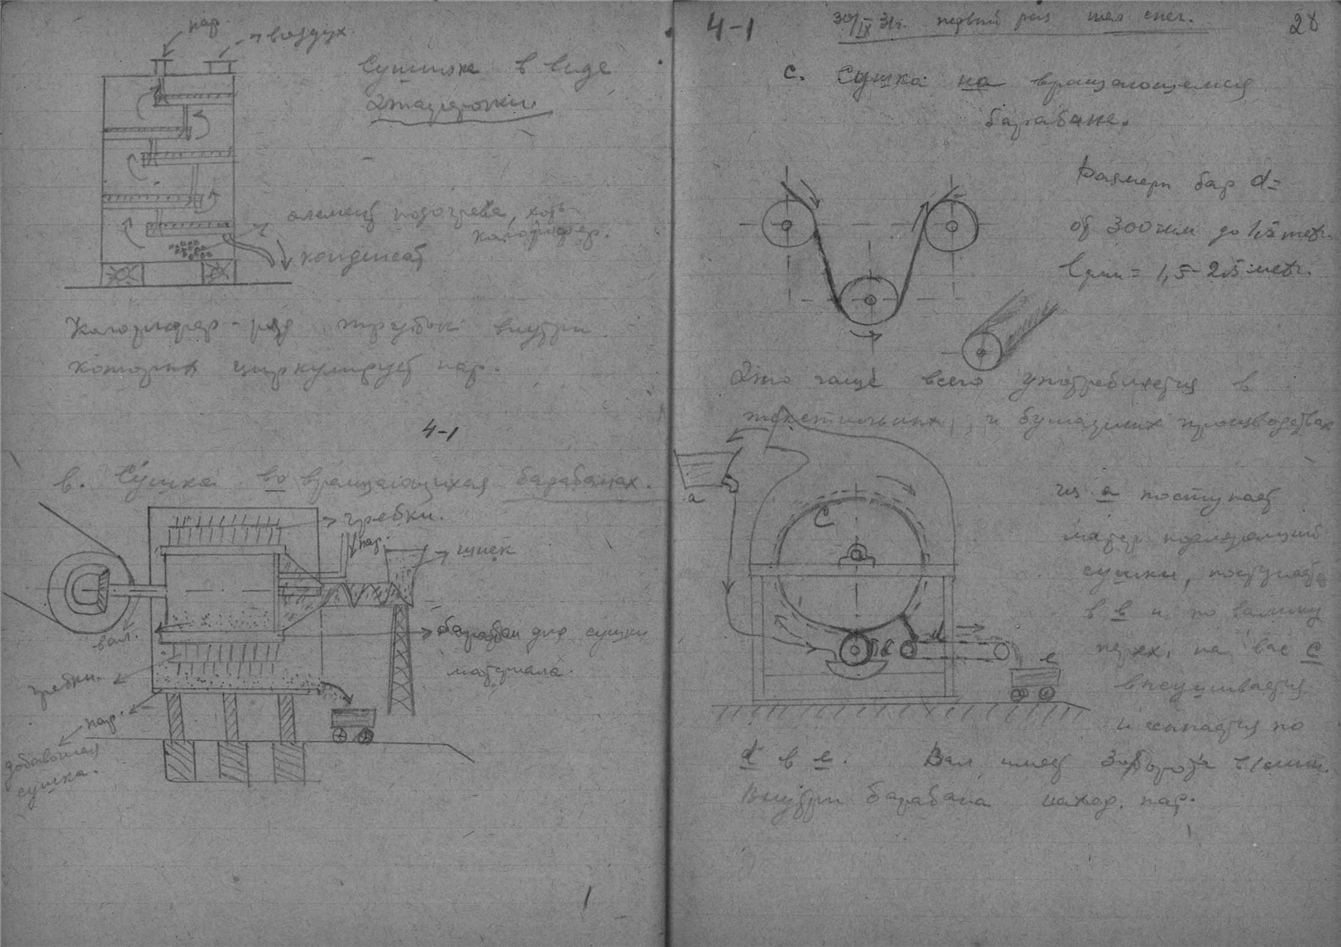 пар.
воздух.
Сушилка в виде
этажерочки
элемент подогрева,
калорифер.
конденсат
Калорифер - ряд трубок внутри
которых циркулирует пар.
4-1
в. Сушка во вращающихся барабанах.
гребки.
пар.
шнек
вал.
барабан для сушки
материала.
гребки.
пар.
добавочная
сушка.
4-1
30/IX 31г. первый раз шел снег.
28
с. Сушка на вращающемся
барабане.
Размеры бар d=
от 300 мм до 1,5 метр.
lдлн = 1,5-2,5 метр.
Это чаще всего употребляется в
текстильных, и бумажных производствах
a
C
в
d
e
из а поступает
матер. подлежащий
сушки, поступает
в в и по валику
перех. на вас С
высушивается
и ссыпается по
d в e. Вал имеет оборота в 1 мин.
Внутри барабана наход. пар.